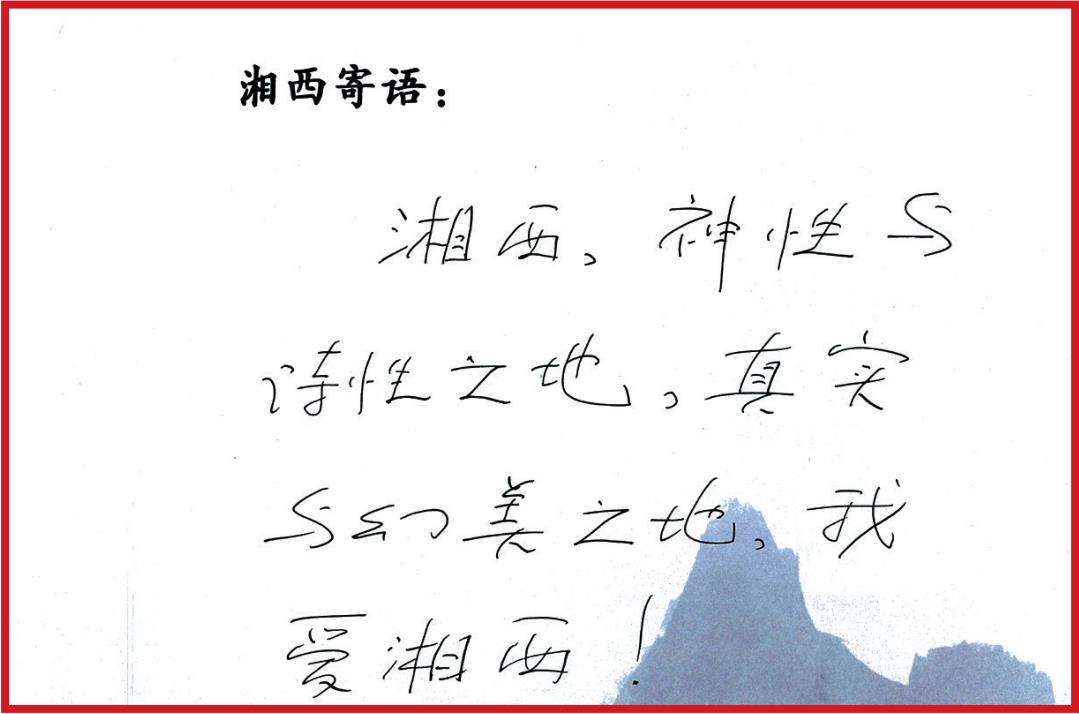 湘西寄语:
湘西,神性与
诗性之地,真实
与幻美之地,我
爱湘西!